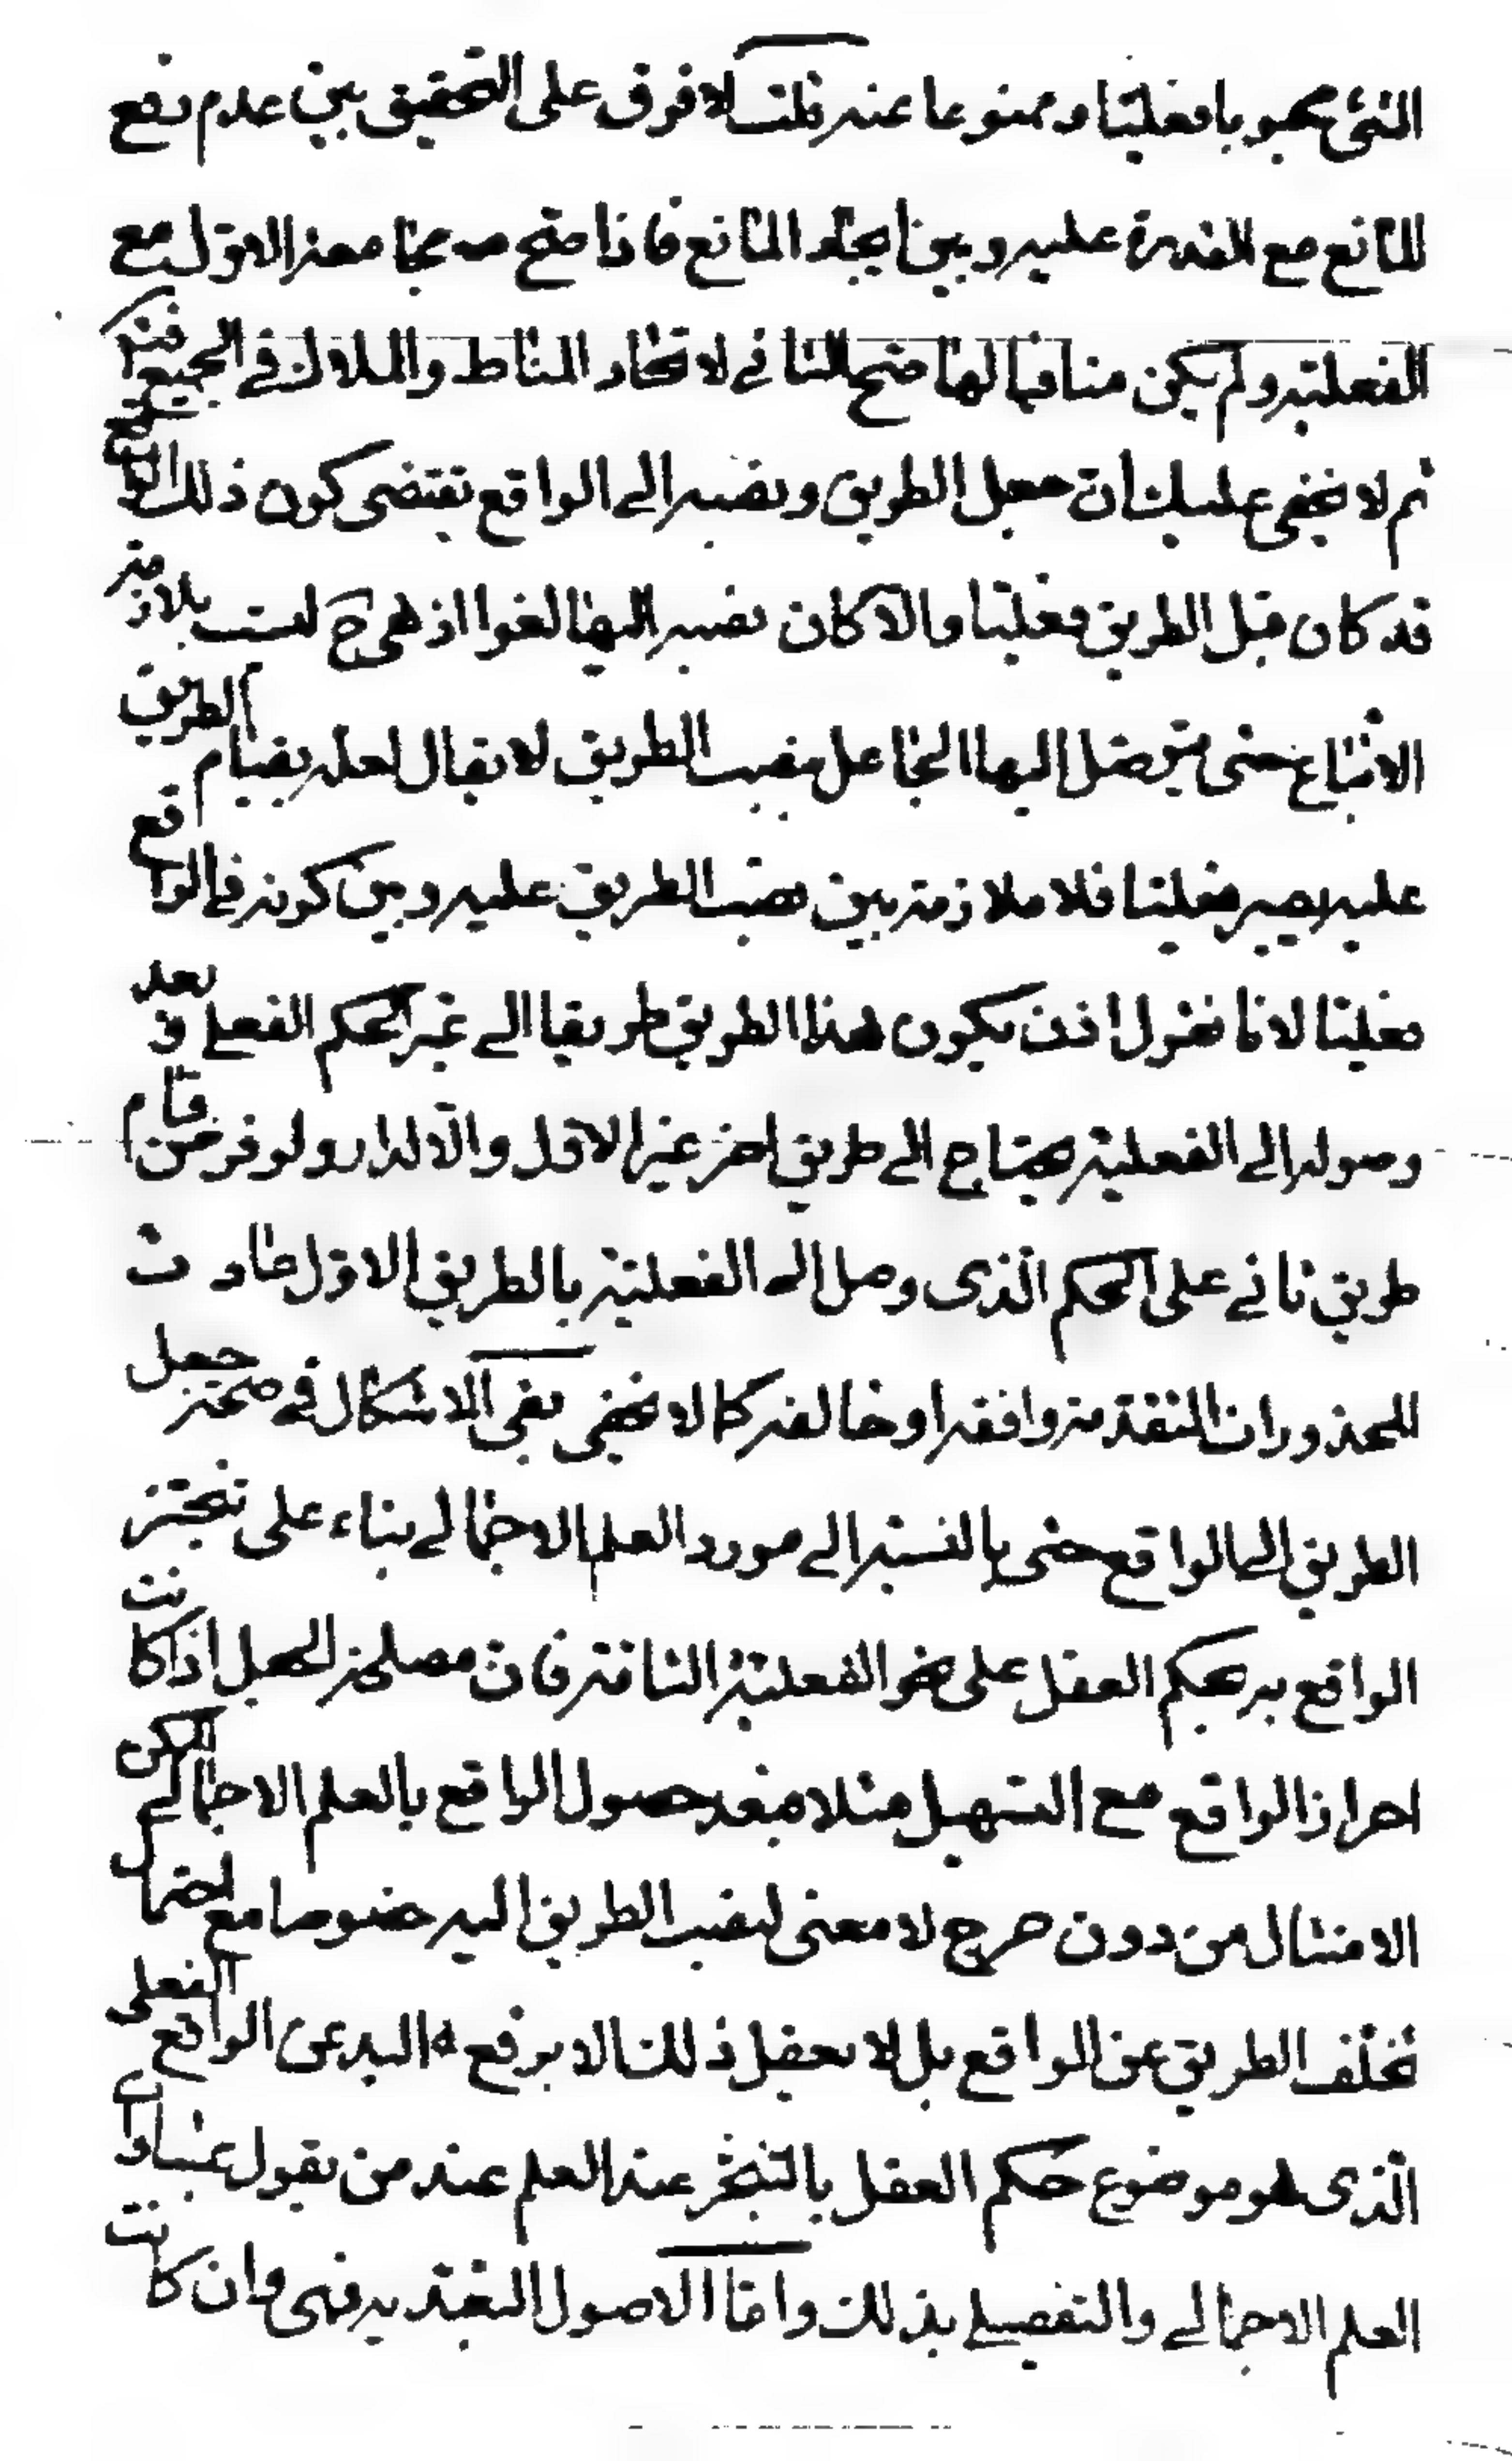 الشئ محبوبا فعليّا وممنوعا عنه قلت لا فرق على التحقيق بين عدم رفع
المانع مع القدرة عليه وبين ايجاد المانع فاذا صحّ مجامعة الاوّل مع
الفعليّة ولم يكن منافيا لها صحّ الثانى لاتّحاد المناط والملاك فى الجميع فتدبر
ثم لا يخفى عليك انّ جعل الطريق ونصبه الى الواقع يقتضى كون ذلك الواقع
قد كان قبل الطريق فعليّا والّا كان نصبه اليها لغوا اذ هى ح ليست بلازمة
الاتّباع حتى يتوصّل اليها الجاعل بنصب الطريق لا يقال لعله بقيام الطريق
عليه يصير فعليّا فلا ملازمة بين نصب الطريق عليه وبين كونه فى الواقع
فعليّا لانا نقول اذن يكون هذا الطريق طريقا الى غير الحكم الفعلى وبعد
وصوله الى الفعليّة يحتاج الى طريق اخر غير الاوّل والّا لدار ولو فرض قيام
طريق ثانى على الحكم الّذى وصل الى الفعليّة بالطريق الاوّل عادت
المحذورات المتقدّمة وافقه او خالفه كما لا يخفى بقى الاشكال فى صحّة جعل
الطريق الى الواقع حتى بالنسبة الى مورد العلم الاجمالى بناء على تنجّز
الواقع به بحكم العقل على نحو الفعليّة التامّة فان مصلحة الجعل اذا كانت
احراز الواقع مع التسهيل مثلا فبعد حصول الواقع بالعلم الاجمالى الممكن
الامتثال من دون حرج لا معنى لنصب الطريق اليه خصوصا مع احتمال
تخلّف الطريق عن الواقع بل لا يعقل ذلك الا برفع اليد عن الواقع الفعلى
الّذى هو موضوع حكم العقل بالتنجّز عند العلم عند من يقول بتساوى
العلم الاجمالى والتفصيلى بذلك وامّا الاصول التعبّديه فهى وان كانت